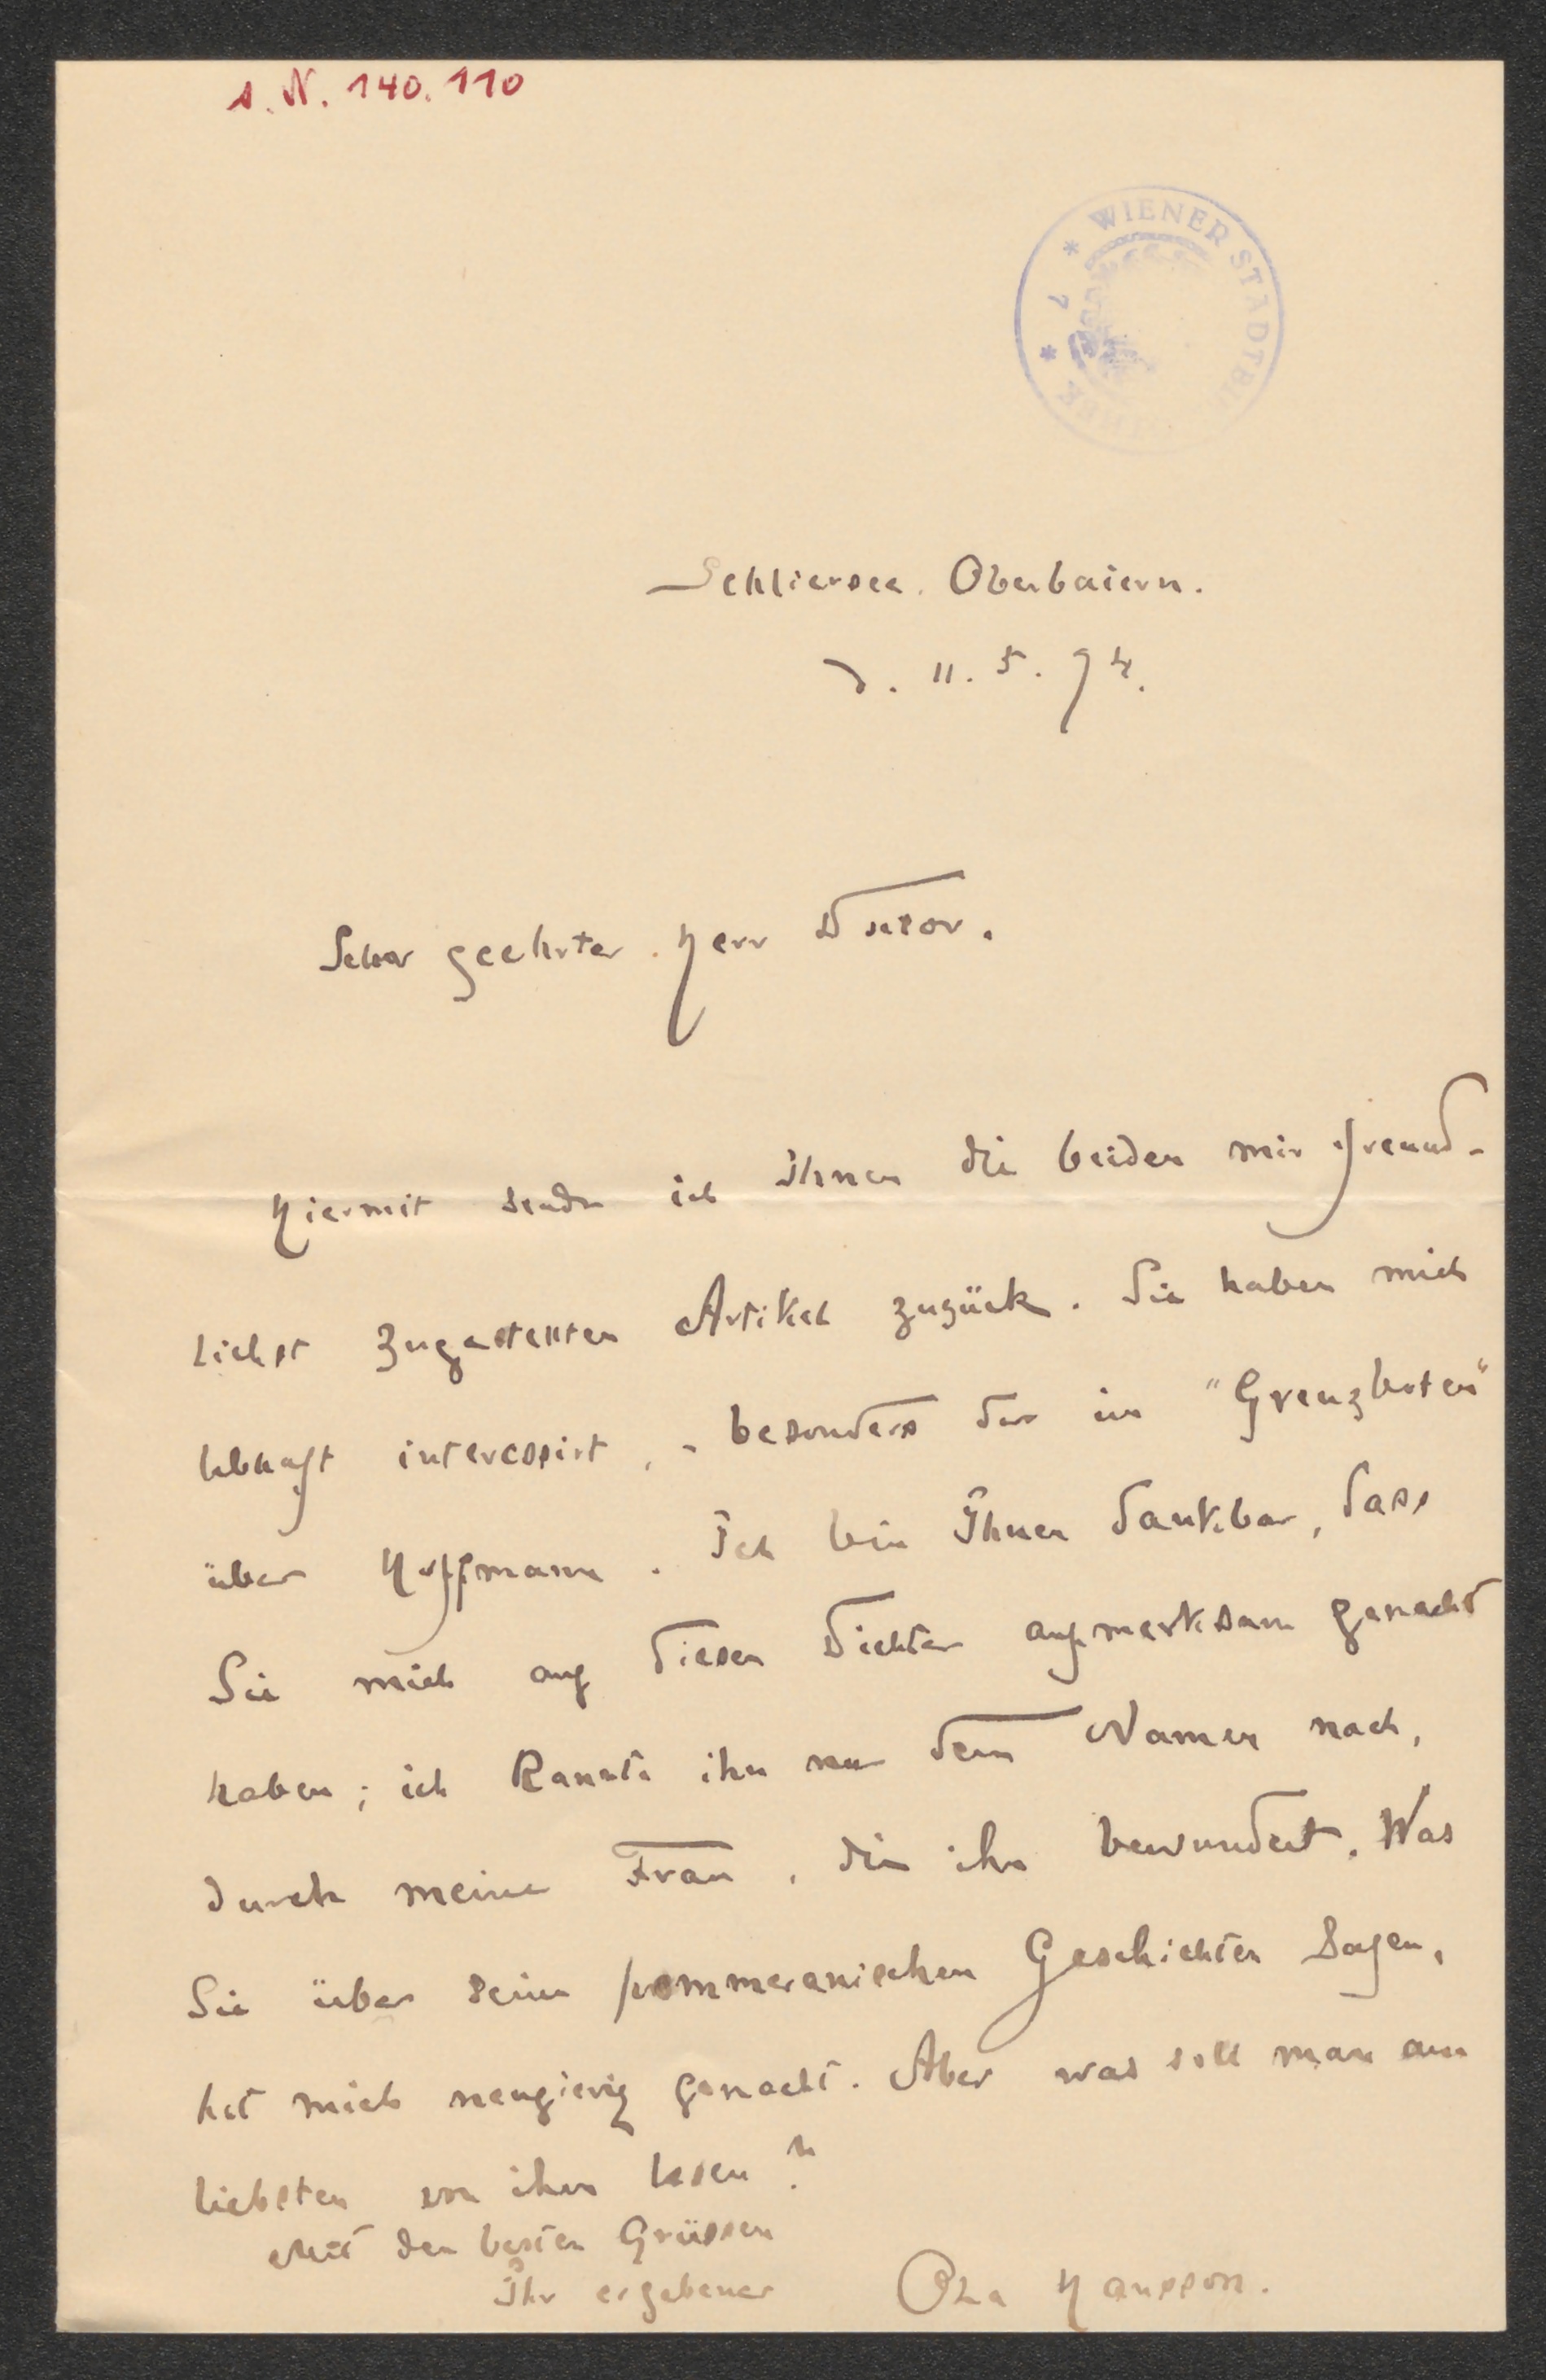 I.N. 140.110
* WIENER STADTBI THEK * 7
Schliersee. Oberbaiern.
d. 11. 5. 94.
Sehr geehrter Herr Doctor.
Hiermit sende ich Ihnen die beiden mir freund-
lichst zugestellten Artikel zurück. Sie haben mich
lebhaft interessirt, - besonders der im "Grenzboten"
über Hoffmann. Ich bin Ihnen dankbar, dass
Sie mich auf diesen Dichter aufmerksam gemacht
haben; ich kannte ihn nur dem Namen nach,
durch meine Frau, die ihn bewundert. Was
Sie über seine pommeranischen Geschichten sagen,
hat mich neugierig gemacht. Aber was soll man am
liebsten von ihm lesen?
Mit den besten Grüssen
Ihr ergebener Ola Hansson.